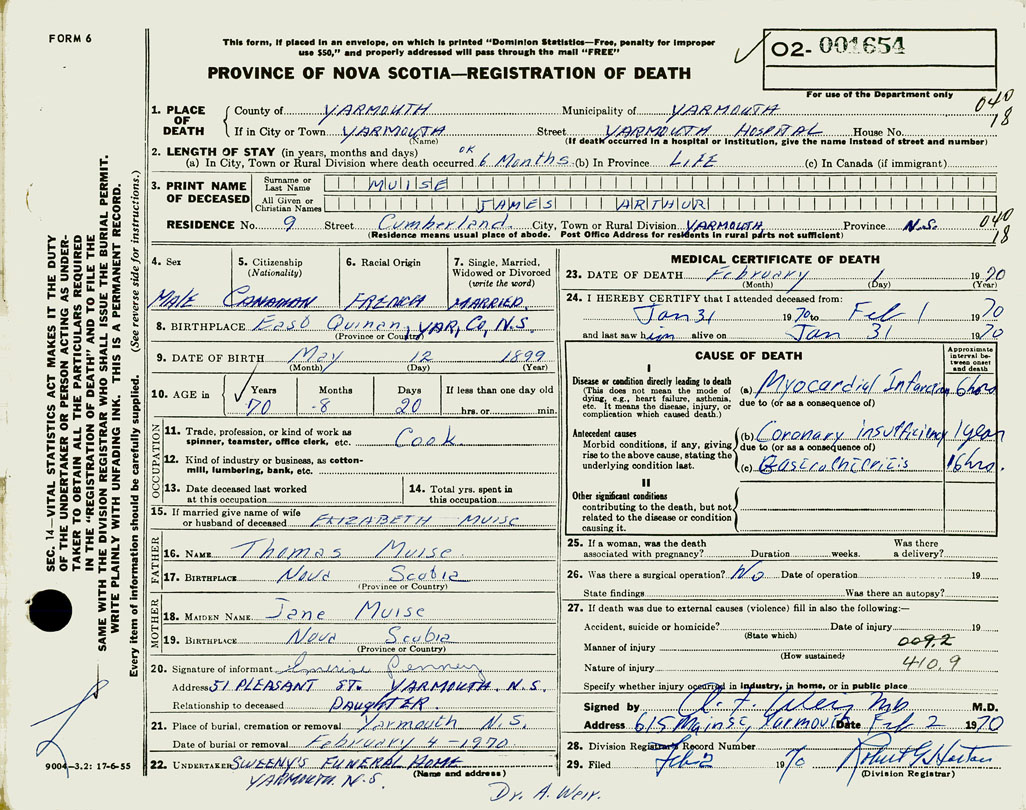 FORM 6
This form, if placed in an envelope, on which is printed "Dominion Statistics—Free, penalty for improper
use $50," and properly addressed will pass through the mail "FREE"
PROVINCE OF NOVA SCOTIA—REGISTRATION OF DEATH
02- 001654
For use of the Department only
040
18
1. PLACE OF DEATH
County of YARMOUTH Municipality of YARMOUTH
If in City or Town YARMOUTH Street YARMOUTH HOSPITAL House No.
(Name) (If death occurred in a hospital or institution, give the name instead of street and number)
2. LENGTH OF STAY (in years, months and days) OK
(a) In City, Town or Rural Division where death occurred 6 Months (b) In Province LIFE (c) In Canada (if immigrant)
3. PRINT NAME OF DECEASED
Surname or Last Name MUISE
All Given or Christian Names JAMES ARTHUR
RESIDENCE No. 9 Street Cumberland City, Town or Rural Division YARMOUTH Province N.S.
(Residence means usual place of abode. Post Office Address for residents in rural parts not sufficient)
040
18
4. Sex 5. Citizenship (Nationality) 6. Racial Origin 7. Single, Married, Widowed or Divorced (write the word)
MALE CANADIAN FRENCH MARRIED
8. BIRTHPLACE East Quinan, YAR, CO, N.S.
(Province or Country)
9. DATE OF BIRTH May 12 1899
(Month) (Day) (Year)
10. AGE in Years Months Days If less than one day old
70 8 20 hrs. or min.
OCCUPATION
11. Trade, profession, or kind of work as spinner, teamster, office clerk, etc. Cook
12. Kind of industry or business, as cotton-mill, lumbering, bank, etc.
13. Date deceased last worked at this occupation 14. Total yrs. spent in this occupation
15. If married give name of wife or husband of deceased ELIZABETH MUISE
FATHER
16. NAME Thomas Muise
17. BIRTHPLACE Nova Scotia
(Province or Country)
MOTHER
18. MAIDEN NAME Jane Muise
19. BIRTHPLACE Nova Scotia
(Province or Country)
20. Signature of informant Penney
Address 51 PLEASANT ST. YARMOUTH. N.S.
Relationship to deceased DAUGHTER
21. Place of burial, cremation or removal Yarmouth N.S.
Date of burial or removal February 4 - 1970
22. UNDERTAKER SWEENY'S FUNERAL HOME
(Name and address)
YARMOUTH N.S.
MEDICAL CERTIFICATE OF DEATH
23. DATE OF DEATH February 1 1970
(Month) (Day) (Year)
24. I HEREBY CERTIFY that I attended deceased from:
Jan 31 1970 to Feb 1 1970
and last saw him alive on Jan 31 1970
CAUSE OF DEATH
Approximate interval between onset and death
I
Disease or condition directly leading to death
(This does not mean the mode of dying, e.g., heart failure, asthenia, etc. It means the disease, injury, or complication which caused death.)
(a) Myocardial Infarction 6 hrs
due to (or as a consequence of)
Antecedent causes
Morbid conditions, if any, giving rise to the above cause, stating the underlying condition last.
(b) Coronary insufficiency 1 year
due to (or as a consequence of)
(c) 16 hrs.
II
Other significant conditions
contributing to the death, but not related to the disease or condition causing it.
25. If a woman, was the death associated with pregnancy? Duration weeks. Was there a delivery?
26. Was there a surgical operation? No Date of operation 19
State findings Was there an autopsy?
27. If death was due to external causes (violence) fill in also the following:—
Accident, suicide or homicide? Date of injury 19
(State which)
Manner of injury 009.2
(How sustained)
Nature of injury 410.9
Specify whether injury occurred in industry, in home, or in public place
Signed by A. F. Weir MD M.D.
Address 615 Main St, Yarmouth Date Feb 2 1970
28. Division Registrar's Record Number
29. Filed Feb 2 1970 Robert G Horton
(Division Registrar)
Dr. A. Weir.
SEC. 14—VITAL STATISTICS ACT MAKES IT THE DUTY
OF THE UNDERTAKER OR PERSON ACTING AS UNDER-
TAKER TO OBTAIN ALL THE PARTICULARS REQUIRED
IN THE "REGISTRATION OF DEATH" AND TO FILE THE
SAME WITH THE DIVISION REGISTRAR WHO SHALL ISSUE THE BURIAL PERMIT.
WRITE PLAINLY WITH UNFADING INK. THIS IS A PERMANENT RECORD.
Every item of information should be carefully supplied. (See reverse side for instructions.)
9004—3.2: 17-6-55